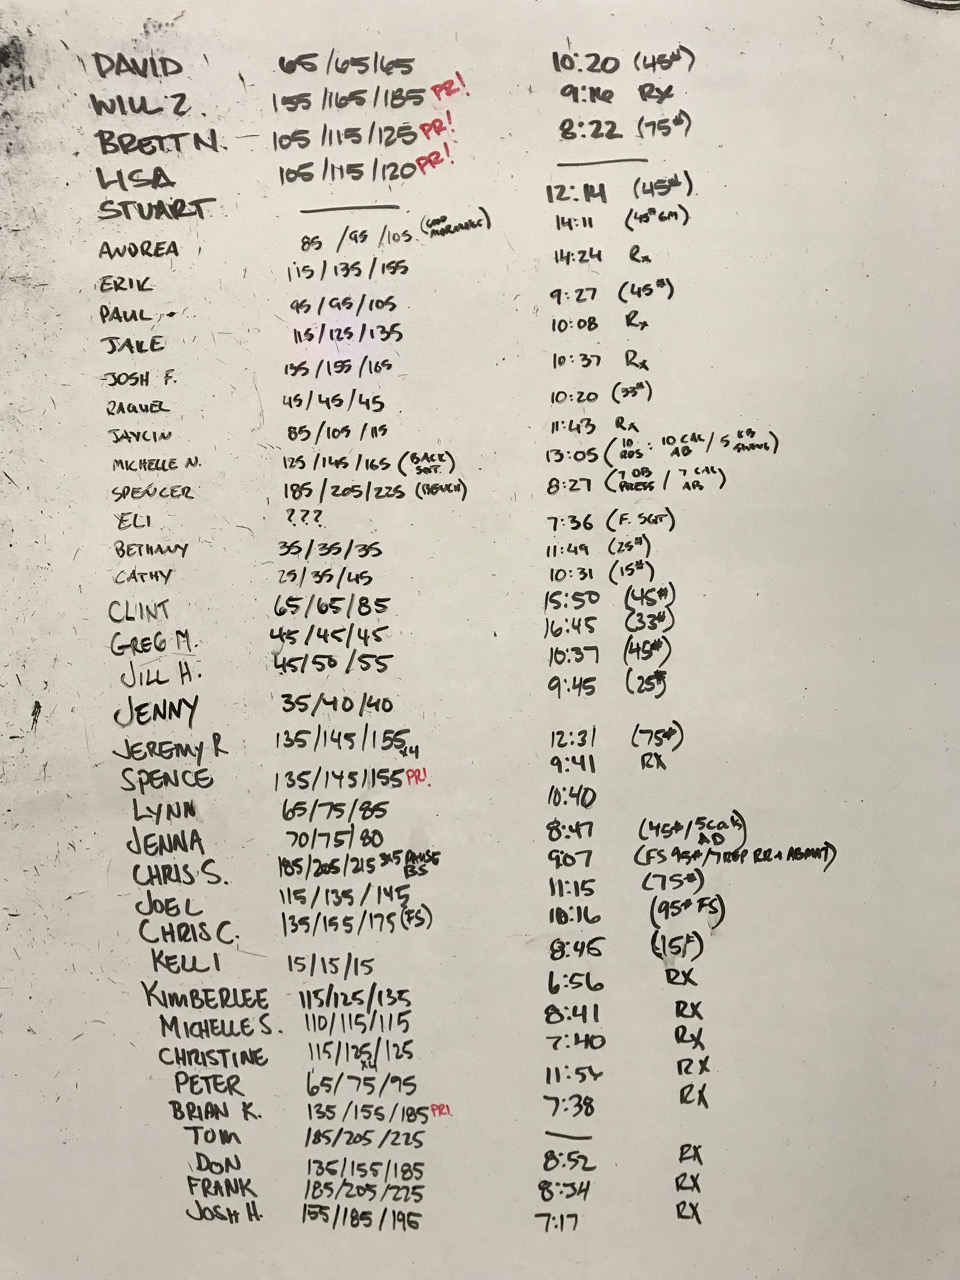 DAVID 65/65/65 10:20 (45#)
WILL Z. 155/165/185 PR! 9:16 Rx
BRETT N. 105/115/125 PR! 8:22 (75#)
LISA 105/115/120 PR! —
STUART — 12:14 (45#)
ANDREA 85/95/105 (GOOD MORNINGS) 14:11 (45# GM)
ERIK 115/135/155 14:24 Rx
PAUL 95/95/105 9:27 (45#)
JAKE 115/125/135 10:08 Rx
JOSH F. 135/155/165 10:37 Rx
RAQUEL 45/45/45 10:20 (33#)
JAYCIN 85/105/115 11:43 Rx
MICHELLE N. 125/145/165 (BACK SQT.) 13:05 (10 RDS: 10 CAL AB/5 KB SWING)
SPENCER 185/205/225 (BENCH) 8:27 (7 DB PRESS/7 CAL AB)
ELI ??? 7:36 (F. SQT)
BETHANY 35/35/35 11:49 (25#)
CATHY 25/35/45 10:31 (15#)
CLINT 65/65/85 15:50 (45#)
GREG M. 45/45/45 16:45 (33#)
JILL H. 45/50/55 10:37 (45#)
JENNY 35/40/40 9:45 (25#)
JEREMY R 135/145/155 x4 12:31 (75#)
SPENCE 135/145/155 PR! 9:41 RX
LYNN 65/75/85 10:40
JENNA 70/75/80 8:47 (45#/5 cals AD)
CHRIS S. 185/205/215 345 PAUSE BS 907 (FS 95#/7 REP RR + ABMAT)
JOEL 115/135/145 11:15 (75#)
CHRIS C. 135/155/175 (FS) 10:16 (95# FS)
KELLI 15/15/15 8:45 (15#)
KIMBERLEE 115/125/135 6:56 RX
MICHELLE S. 110/115/115 8:41 RX
CHRISTINE 115/125 x4/125 7:40 Rx
PETER 65/75/95 11:54 RX
BRIAN K. 135/155/185 PR! 7:38 RX
TOM 185/205/225 —
DON 135/155/185 8:52 RX
FRANK 185/205/225 8:34 RX
JOSH H. 155/185/195 7:17 RX